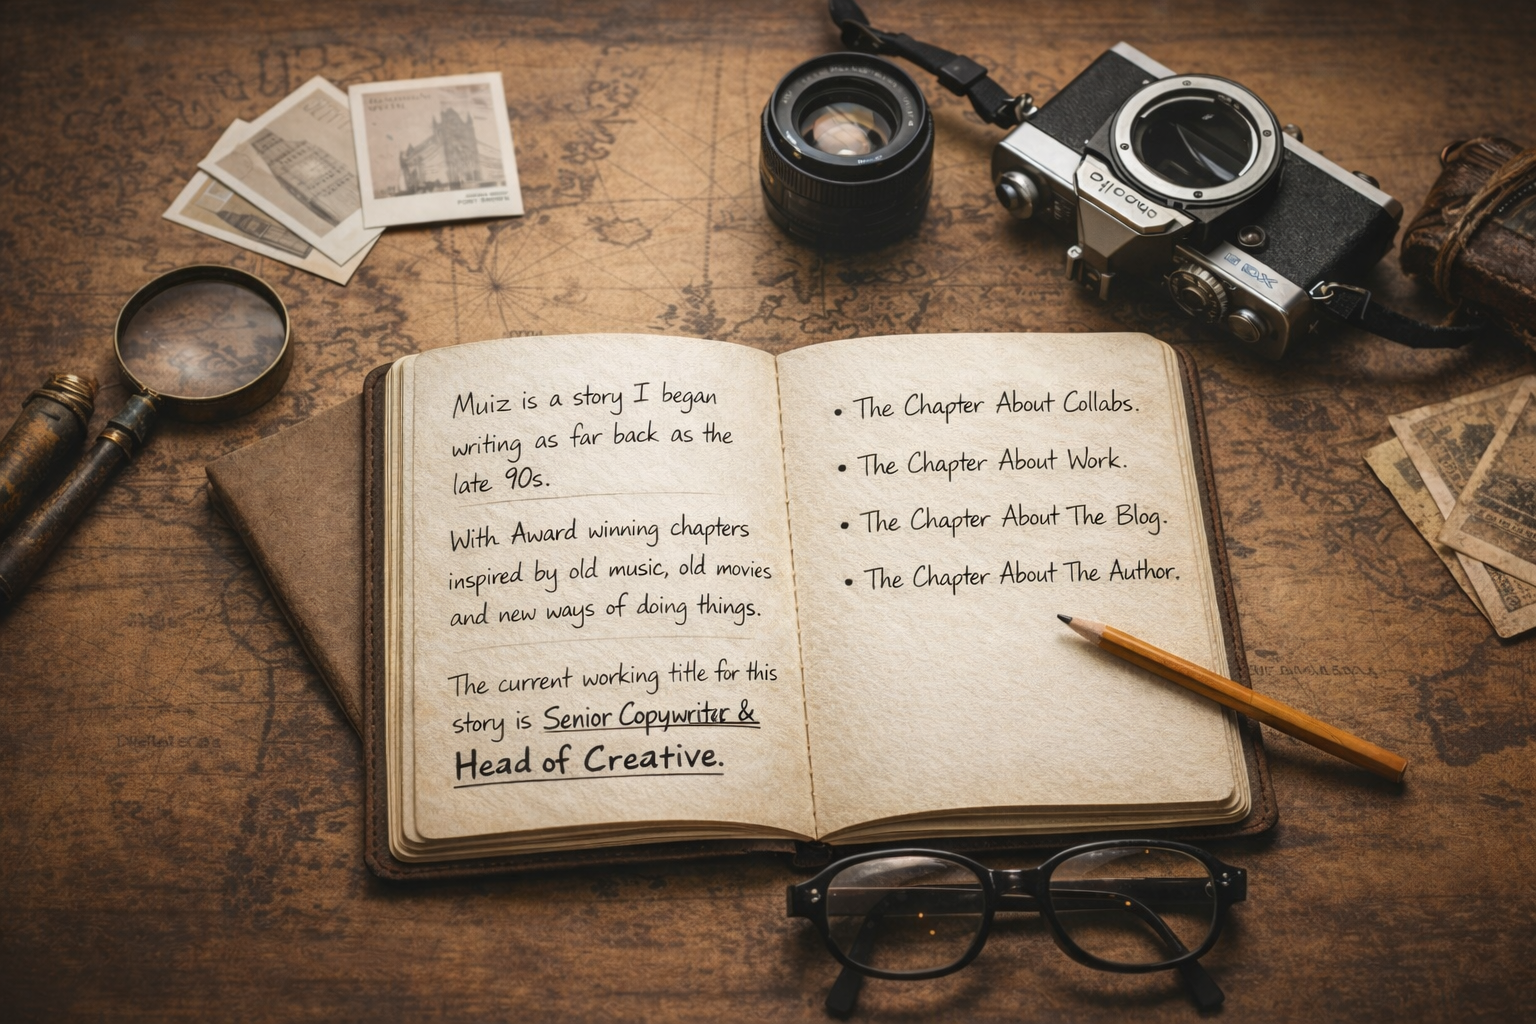 Muiz is a story I began
writing as far back as the
late 90s.
With Award winning chapters
inspired by old music, old movies
and new ways of doing things.
The current working title for this
story is Senior Copywriter &
Head of Creative.
• The Chapter About Collabs.
• The Chapter About Work.
• The Chapter About The Blog.
• The Chapter About The Author.